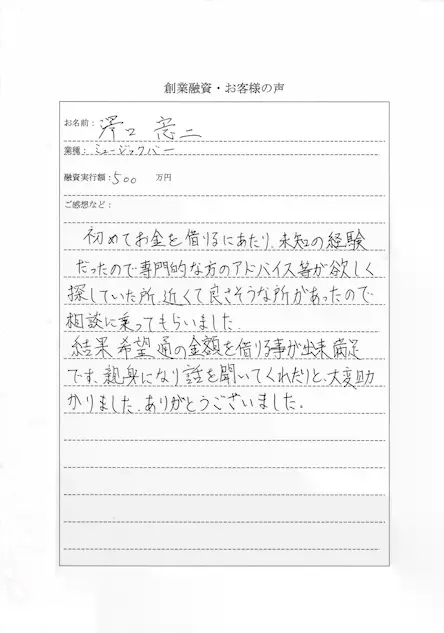 創業融資・お客様の声
お名前： 澤口 亮二
業種： ミュージックバー
融資実行額：500 万円
ご感想など：
初めてお金を借りるにあたり、未知の経験
だったので専門的な方のアドバイス等が欲しく
探していた所、近くて良さそうな所があったので
相談に乗ってもらいました。
結果 希望通の金額を借りる事が出来満足
です、親身になり話を聞いてくれたりと、大変助
かりました、ありがとうございました。